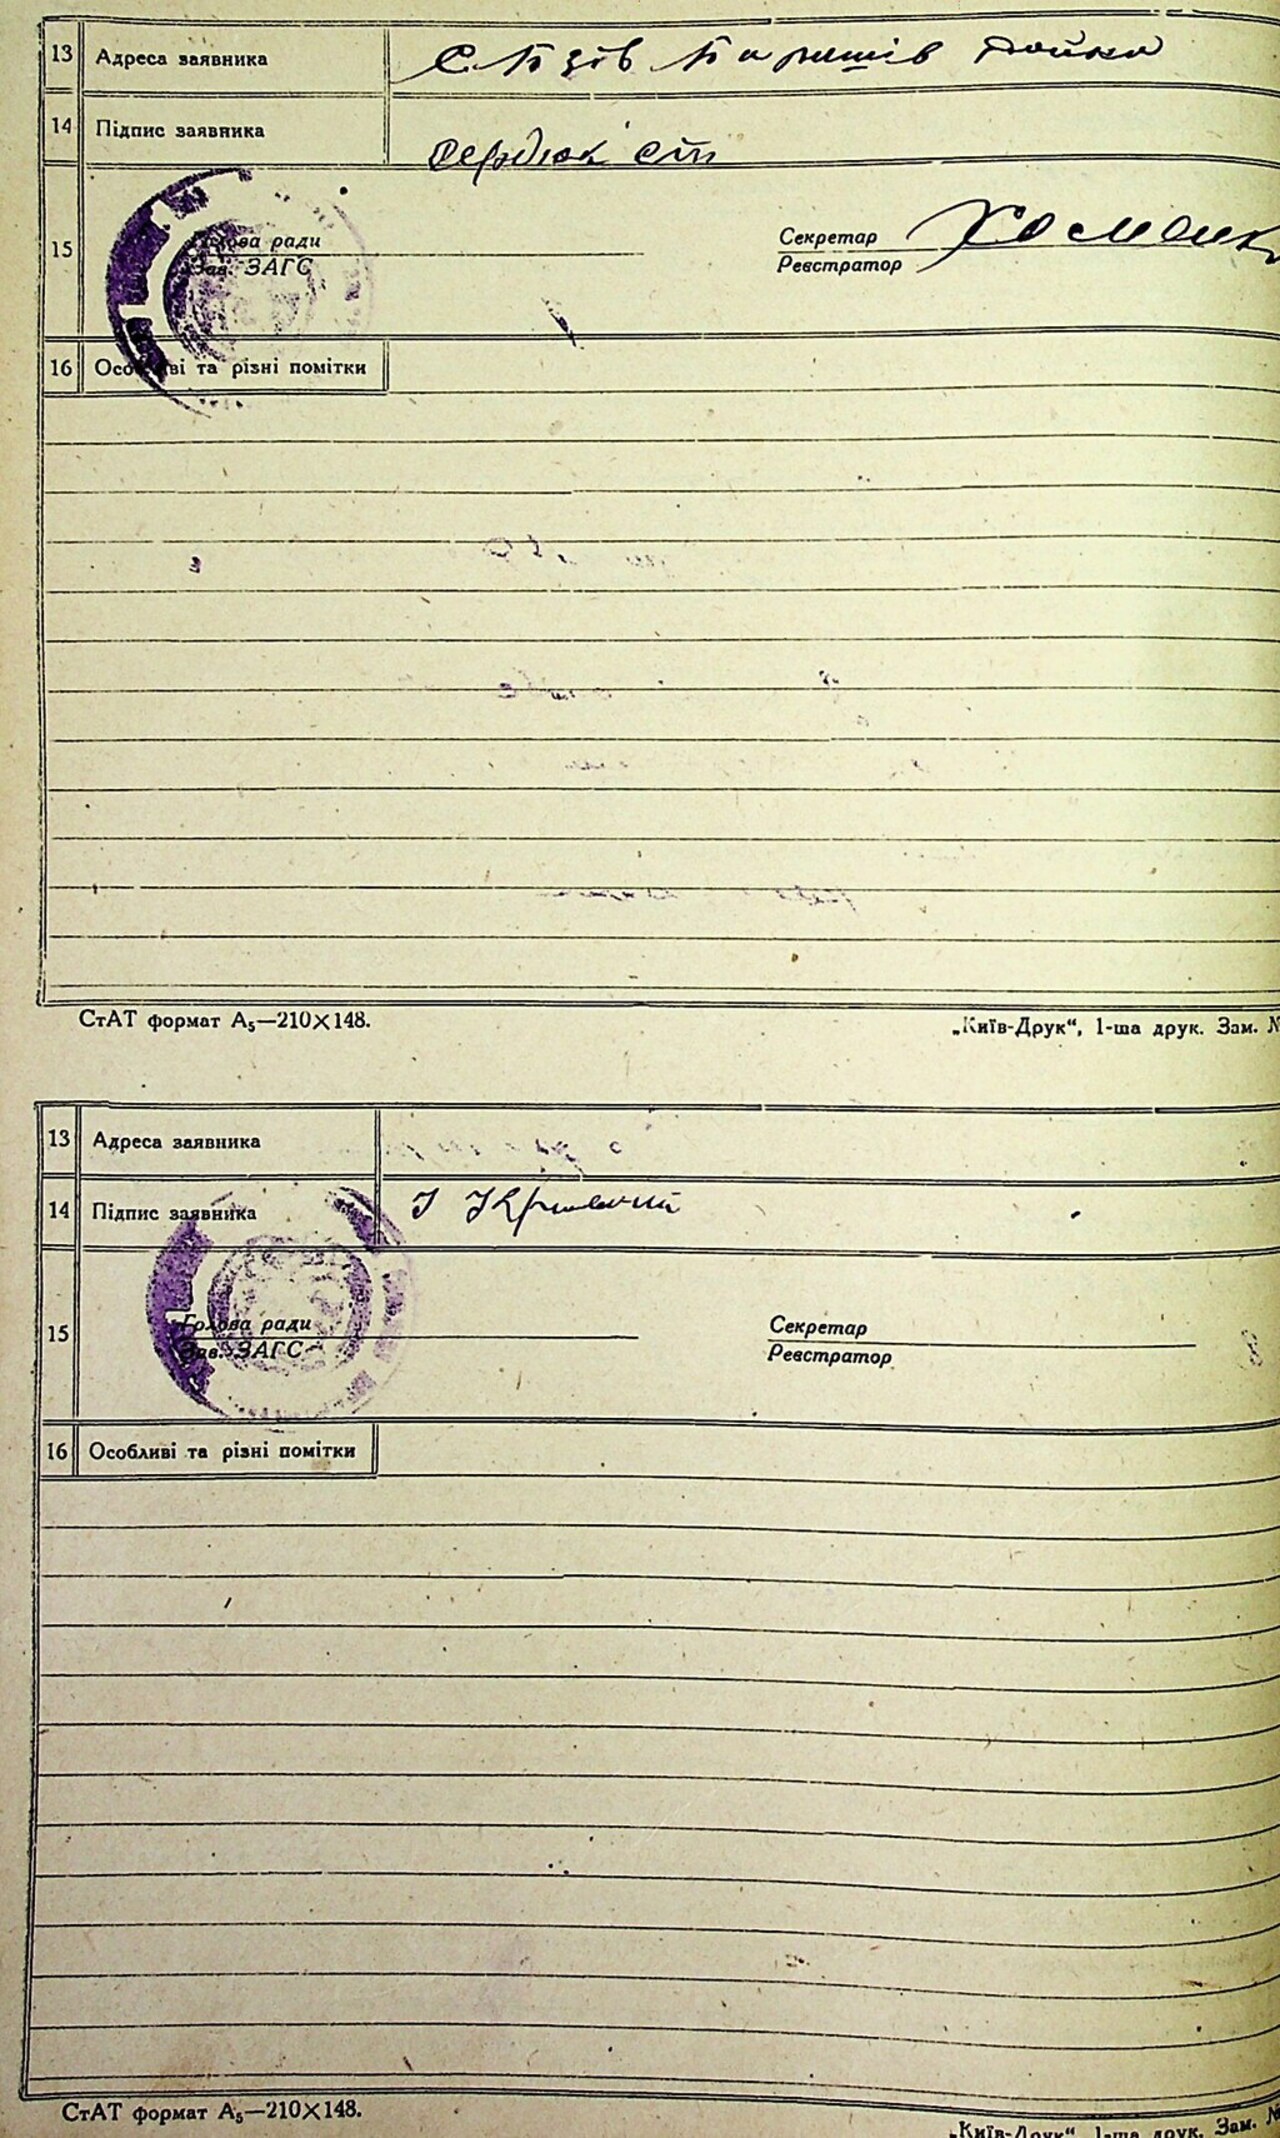 13 Адреса заявника
14 Підпис заявника Сердюк
15 Голова ради
Зав. ЗАГС
Секретар
Реєстратор
16 Особливі та різні помітки
СтАТ формат А₅—210×148.
„Київ-Друк“, 1-ша друк. Зам. №
13 Адреса заявника
14 Підпис заявника
15 Голова ради
Зав. ЗАГС
Секретар
Реєстратор
16 Особливі та різні помітки
СтАТ формат А₅—210×148.
„Київ-Друк“, 1-ша друк. Зам. №